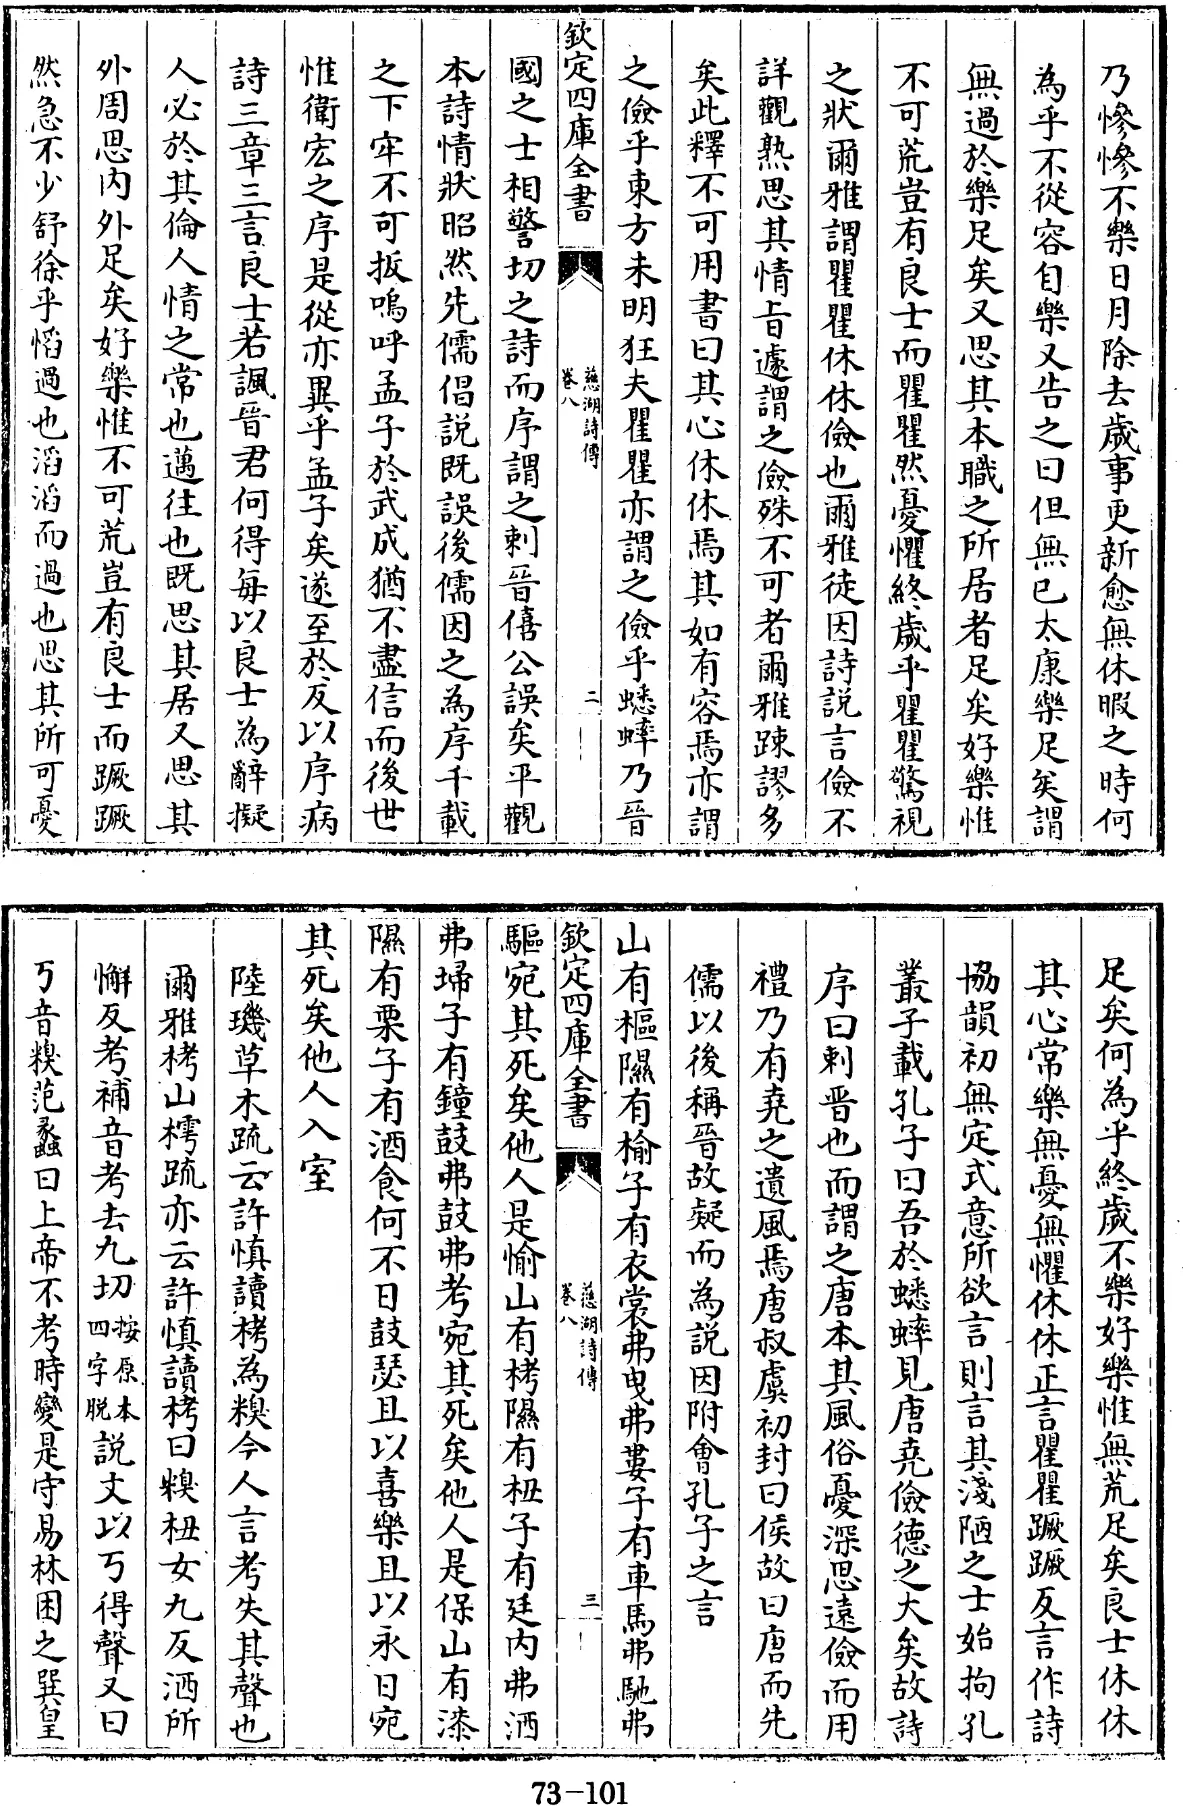 乃慘慘不樂日月除去歲事更新愈無休暇之時何
為乎不從容自樂又告之曰但無已太康樂足矣謂
無過於樂足矣又思其本職之所居者足矣好樂惟
不可荒豈有良士而瞿瞿然憂懼終歲乎瞿瞿驚視
之狀爾雅謂瞿瞿休休儉也爾雅徒因詩説言儉不
詳觀熟思其情旨遽謂之儉殊不可者爾雅踈謬多
矣此釋不可用書曰其心休休焉其如有容焉亦謂
之儉乎東方未明狂夫瞿瞿亦謂之儉乎蟋蟀乃晉
欽定四庫全書
慈湖詩傳
卷八
二
國之士相警切之詩而序謂之刺晉僖公誤矣平觀
本詩情狀昭然先儒倡説既誤後儒因之為序千載
之下牢不可扳嗚呼孟子於武成猶不盡信而後世
惟衛宏之序是從亦異乎孟子矣遂至於反以序病
詩三章三言良士若諷晉君何得每以良士為辭擬
人必於其倫人情之常也邁往也既思其居又思其
外周思内外足矣好樂惟不可荒豈有良士而蹶蹶
然急不少舒徐乎慆過也滔滔而過也思其所可憂
足矣何為乎終歲不樂好樂惟無荒足矣良士休休
其心常樂無憂無懼休休正言瞿瞿蹶蹶反言作詩
協韻初無定式意所欲言則言其淺陋之士始拘孔
叢子載孔子曰吾於蟋蟀見唐堯儉德之大矣故詩
序曰刺晉也而謂之唐本其風俗憂深思遠儉而用
禮乃有堯之遺風焉唐叔虞初封曰侯故曰唐而先
儒以後稱晉故疑而為説因附會孔子之言
山有樞隰有榆子有衣裳弗曳弗婁子有車馬弗馳弗
欽定四庫全書
慈湖詩傳
卷八
三
驅宛其死矣他人是愉山有栲隰有杻子有廷内弗洒
弗埽子有鐘鼓弗鼓弗考宛其死矣他人是保山有漆
隰有栗子有酒食何不日鼓瑟且以喜樂且以永日宛
其死矣他人入室
陸璣草木疏云許慎讀栲為糗今人言考失其聲也
爾雅栲山樗疏亦云許慎讀栲曰糗杻女九反洒所
懈反考補音考去九切按原本四字脱説文以丂得聲又曰
丂音糗范蠡曰上帝不考時變是守易林困之巽皇
73-101